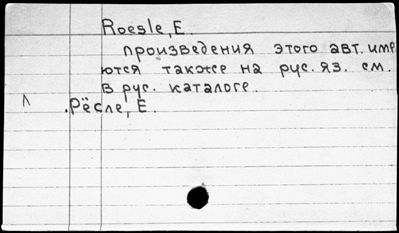 Roesle, E.
произведения этого авт. име
ются также на рус. яз. см.
в рус. каталоге.
Рёсле, Е.